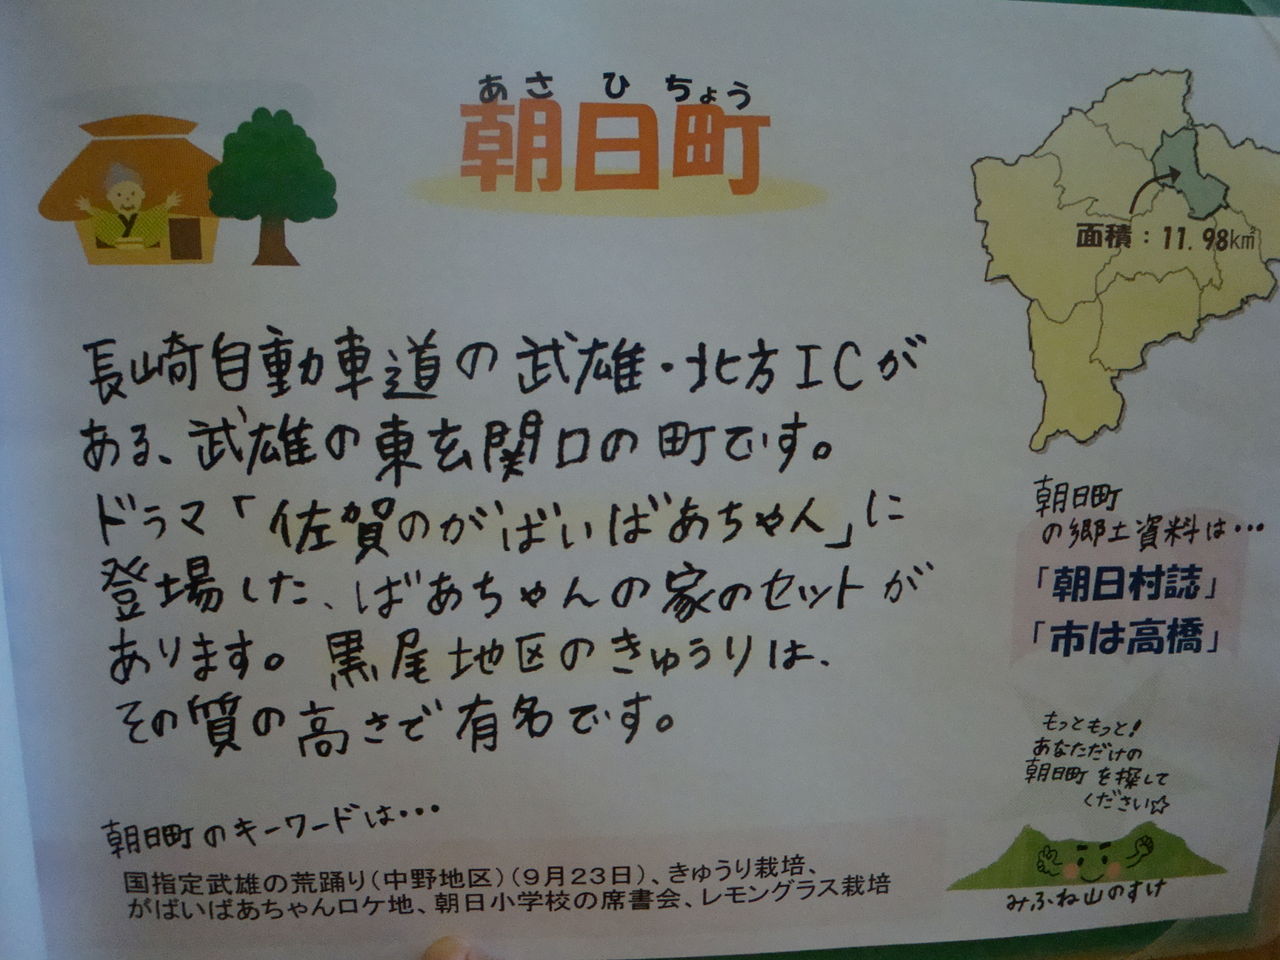 あさひちょう
朝日町
面積：11.98km²
長崎自動車道の武雄・北方ICが
ある、武雄の東玄関口の町です。
ドラマ「佐賀のがばいばあちゃん」に
登場した、ばあちゃんの家のセットが
あります。黒尾地区のきゅうりは、
その質の高さで有名です。
朝日町
の郷土資料は…
「朝日村誌」
「市は高橋」
もっともっと!
あなただけの
朝日町を探して
ください☆
みふね山のすけ
朝日町のキーワードは…
国指定武雄の荒踊り(中野地区)(9月23日)、きゅうり栽培、
がばいばあちゃんロケ地、朝日小学校の席書会、レモングラス栽培